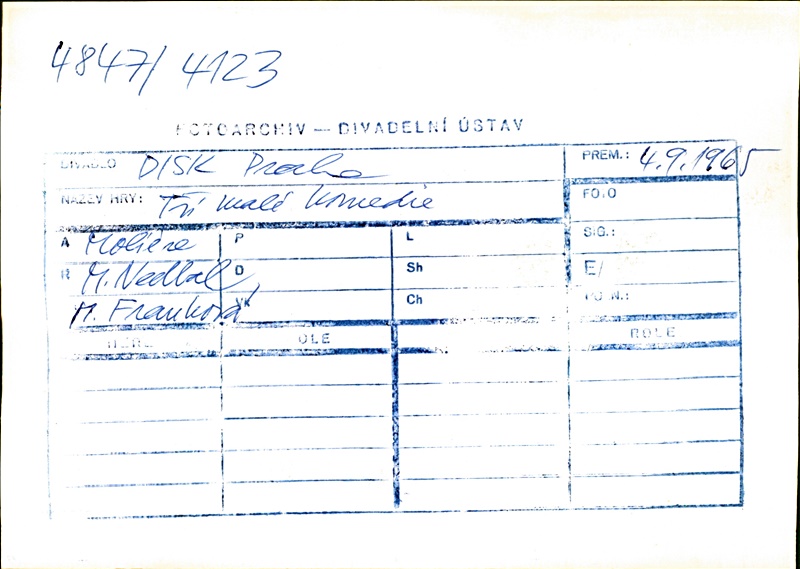 4847/ 4123
FOTOARCHIV — DIVADELNÍ ÚSTAV
DIVADLO DISK Praha PREM.: 4.9.1965
NÁZEV HRY: Tři malé komedie FOTO
A Moliére P L SIG.:
R M. Nedbal, D Sh E/
M. Franková VK Ch POZN.:
HERE OLE ROLE